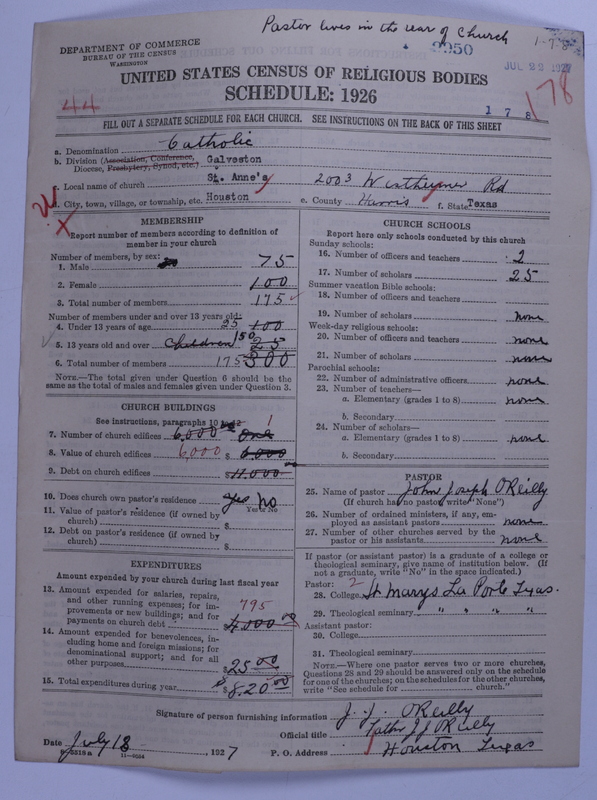 Pastor lives in the rear of Church
DEPARTMENT OF COMMERCE
BUREAU OF THE CENSUS
WASHINGTON
2950
1-7-8
JUL 22 1927
UNITED STATES CENSUS OF RELIGIOUS BODIES
SCHEDULE: 1926
44
1 7 8
178
FILL OUT A SEPARATE SCHEDULE FOR EACH CHURCH. SEE INSTRUCTIONS ON THE BACK OF THIS SHEET
a. Denomination Catholic
b. Division (Association, Conference, Diocese, Presbytery, Synod, etc.) Galveston
c. Local name of church St. Anne's 2003 Westheimer Rd
d. City, town, village, or township, etc. Houston e. County Harris f. State Texas
MEMBERSHIP
Report number of members according to definition of
member in your church
Number of members, by sex:
1. Male 75
2. Female 100
3. Total number of members 175
Number of members under and over 13 years old:
4. Under 13 years of age 25 100
5. 13 years old and over Children 150 25
6. Total number of members 175 300
NOTE.—The total given under Question 6 should be the
same as the total of males and females given under Question 3.
CHURCH BUILDINGS
See instructions, paragraphs 10 to 12
7. Number of church edifices 6,000 One 1
8. Value of church edifices 6,000 $ 6,000
9. Debt on church edifices $ 11,000
10. Does church own pastor's residence Yes No
Yes or No
11. Value of pastor's residence (if owned by
church) $
12. Debt on pastor's residence (if owned by
church) $
EXPENDITURES
Amount expended by church during last fiscal year
13. Amount expended for salaries, repairs,
and other running expenses; for im-
provements or new buildings; and for
payments on church debt 795 $ 4,000 00
14. Amount expended for benevolences, in-
cluding home and foreign missions; for
denominational support; and for all
other purposes $ 25 00
15. Total expenditures during year $ 820 00
CHURCH SCHOOLS
Report here only schools conducted by this church
Sunday schools:
16. Number of officers and teachers 2
17. Number of scholars 25
Summer vacation Bible schools:
18. Number of officers and teachers
19. Number of scholars none
Week-day religious schools:
20. Number of officers and teachers none
21. Number of scholars none
Parochial schools:
22. Number of administrative officers none
23. Number of teachers—
a. Elementary (grades 1 to 8) none
b. Secondary
24. Number of scholars—
a. Elementary (grades 1 to 8) none
b. Secondary
PASTOR
25. Name of pastor John Joseph O'Reilly
(If church has no pastor, write "None")
26. Number of ordained ministers, if any, em-
ployed as assistant pastors none
27. Number of other churches served by the
pastor or his assistants none
If pastor (or assistant pastor) is a graduate of a college or
theological seminary, give name of institution below. (If
not a graduate, write "No" in the space indicated.)
Pastor: 2
28. College St Marys La Porte Texas
29. Theological seminary " " " "
Assistant pastor:
30. College
31. Theological seminary
NOTE.—Where one pastor serves two or more churches,
Questions 28 and 29 should be answered only on the schedule
for one of the churches; on the schedules for the other churches,
write "See schedule for church."
Signature of person furnishing information J. J. O'Reilly
Official title Father J J O'Reilly
Date July 18, 1927 P. O. Address Houston Texas